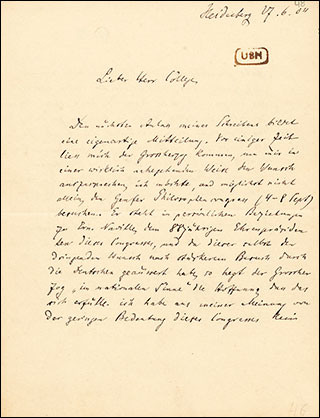 Heidelberg 27.6.04
UBM
Lieber Herr College,
Den nächsten Anlass meines Schreibens bildet
eine eigenartige Mitteilung. Vor einiger Zeit
liess mich der Grossherzog kommen, um mir in
einer wirklich Weise den Wunsch
auszusprechen, ich möchte, und möglichst nicht
allein, den Genfer Philosophencongress (4–8 Sept)
besuchen. Er steht in persönlichen Beziehungen
zu Ern. Naville, dem 88jährigen Ehrenpräsiden
ten dieses Congresses, und da dieser selbst den
dringenden Wunsch nach stärkerem Besuch durch
die Deutschen geäussert hat, so hegt der Grossher
zog „im nationalen Sinne" die Hoffnung, dass das
sich erfülle. Ich habe aus meiner Meinung von
der geringen Bedeutung dieses Congresses kein